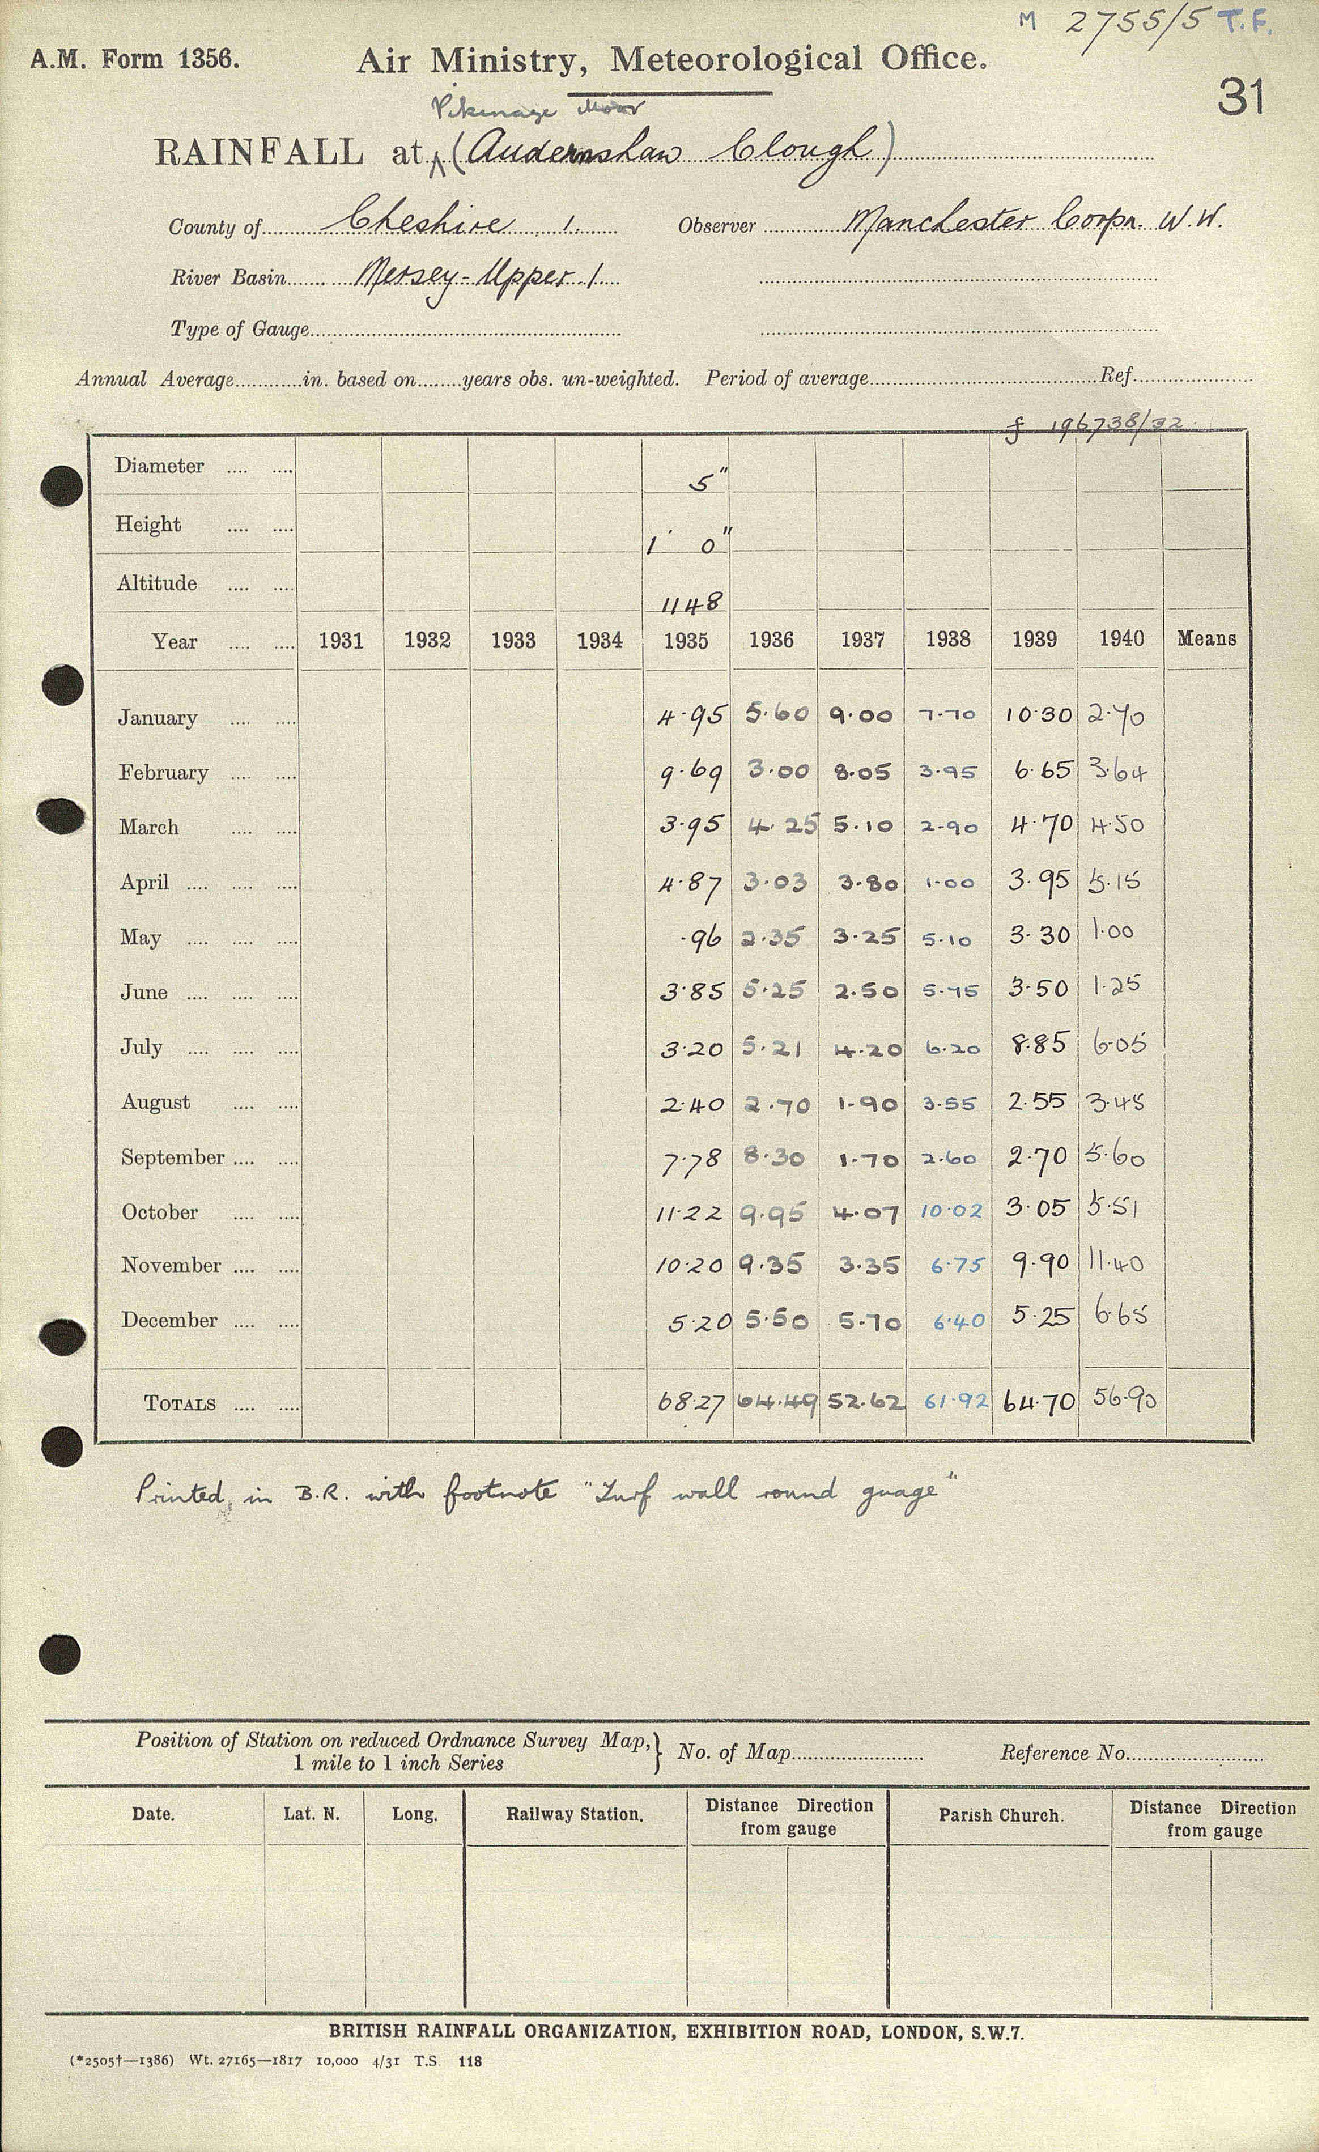 M 2755/5 T.F.
A.M. Form 1356.
Air Ministry, Meteorological Office.
31
Pikenaze Moor
RAINFALL at (Audenshaw Clough)
County of Cheshire 1. Observer Manchester Corpn. W.W.
River Basin Mersey-Upper 1
Type of Gauge
Annual Average in. based on years obs. un-weighted. Period of average Ref.
f 196738/32
Diameter 5"
Height 1' 0"
Altitude 1148
Year 1931 1932 1933 1934 1935 1936 1937 1938 1939 1940 Means
January 4.95 5.60 9.00 7.70 10.30 2.70
February 9.69 3.00 8.05 3.95 6.65 3.64
March 3.95 4.25 5.10 2.90 4.70 4.50
April 4.87 3.03 3.80 1.00 3.95 5.15
May .96 2.35 3.25 5.10 3.30 1.00
June 3.85 5.25 2.50 5.75 3.50 1.25
July 3.20 5.21 4.20 6.20 8.85 6.05
August 2.40 2.70 1.90 3.55 2.55 3.45
September 7.78 8.30 1.70 2.60 2.70 5.60
October 11.22 9.95 4.07 10.02 3.05 5.51
November 10.20 9.35 3.35 6.75 9.90 11.40
December 5.20 5.50 5.70 6.40 5.25 6.65
TOTALS 68.27 64.49 52.62 61.92 64.70 56.90
Printed in B.R. with footnote "Turf wall round guage"
Position of Station on reduced Ordnance Survey Map, } No. of Map Reference No.
1 mile to 1 inch Series
Date. Lat. N. Long. Railway Station. Distance Direction from gauge Parish Church. Distance Direction from gauge
BRITISH RAINFALL ORGANIZATION, EXHIBITION ROAD, LONDON, S.W.7.
(*2505†—1386) Wt. 27165—1817 10,000 4/31 T.S. 118